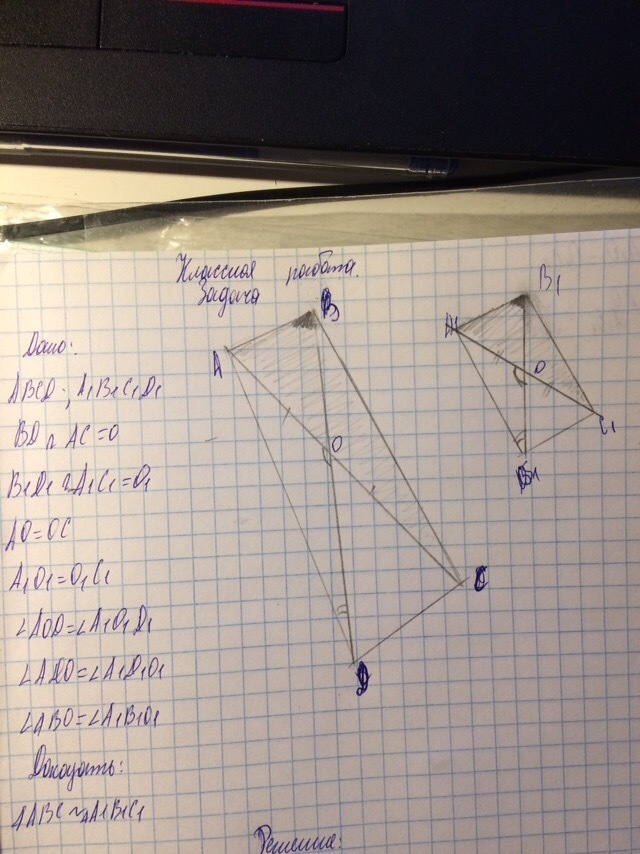 Классная работа.
Задача
Дано:
ABCD; A1B1C1D1
BD ∩ AC = O
B1D1 ∩ A1C1 = O1
AO = OC
A1O1 = O1C1
∠AOD = ∠A1O1D1
∠ADO = ∠A1D1O1
∠ABO = ∠A1B1O1
Доказать:
ΔABC ~ ΔA1B1C1
Решение:
A
B
O
C
D
A1
B1
O
C1
D1